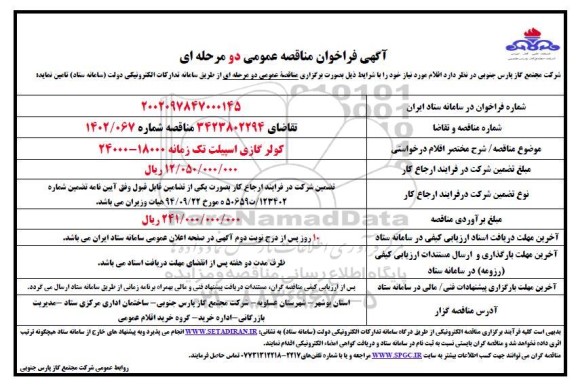 آگهی فراخوان مناقصه عمومی دو مرحله ای
شرکت مجتمع گاز پارس جنوبی در نظر دارد اقلام مورد نیاز خود را با شرایط ذیل بصورت برگزاری مناقصه عمومی دو مرحله ای از طریق سامانه تدارکات الکترونیکی دولت (سامانه ستاد) تامین نماید:
شماره فراخوان در سامانه ستاد ایران
2002097847000145
شماره مناقصه و تقاضا
تقاضای 3423802294 مناقصه شماره 1402/067
موضوع مناقصه / شرح مختصر اقلام درخواستی
کولر گازی اسپیلت تک زمانه 18000-24000
مبلغ تضمین شرکت در فرایند ارجاع کار
12/050/000/000 ریال
نوع تضمین شرکت درفرایند ارجاع کار
تضمین شرکت در فرایند ارجاع کار بصورت یکی از تضامین قابل قبول وفق آیین نامه تضمین شماره
123402/ت50659ه مورخ 94/09/22 هیات وزیران می باشد.
مبلغ برآوردی مناقصه
241/000/000/000 ریال
آخرین مهلت دریافت اسناد ارزیابی کیفی در سامانه ستاد
10 روز پس از درج نوبت دوم آگهی در صفحه اعلان عمومی سامانه ستاد ایران می باشد.
آخرین مهلت بارگذاری و ارسال مستندات ارزیابی کیفی
(رزومه) در سامانه ستاد
ظرف مدت دو هفته پس از انقضای مهلت دریافت اسناد می باشد.
آخرین مهلت بارگزاری پیشنهادات فنی/ مالی در سامانه ستاد
پس از ارزیابی کیفی مناقصه گران، مستندات دریافت پیشنهاد فنی و مالی بهمراه برنامه زمانی از طریق سامانه ستاد ارسال می گردد.
آدرس مناقصه گزار
استان بوشهر- شهرستان عسلویه- شرکت مجتمع گاز پارس جنوبی- ساختمان اداری مرکزی ستاد -مدیریت
بازرگانی-اداره خرید- گروه خرید اقلام عمومی
بدیهی است کلیه فرآیند برگزاری مناقصه الکترونیکی از طریق درگاه سامانه تدارکات الکترونیکی دولت (سامانه ستاد) به نشانی: WWW.SETADIRAN.IR انجام می پذیرد وبه پیشنهاد های خارج از سامانه ستاد هیچگونه ترتیب
اثری داده نخواهد شد و مناقصه گران بایستی نسبت به ثبت نام در سامانه ستاد و دریافت گواهی امضاء الکترونیکی اقدام نمایند.
مناقصه گران می توانند جهت کسب اطلاعات بیشتر به سایت WWW.SPGC.IR مراجعه و یا با شماره تلفن‌های 2217-07731312218 تماس حاصل فرمایند.
روابط عمومی شرکت مجتمع گاز پارس جنوبی